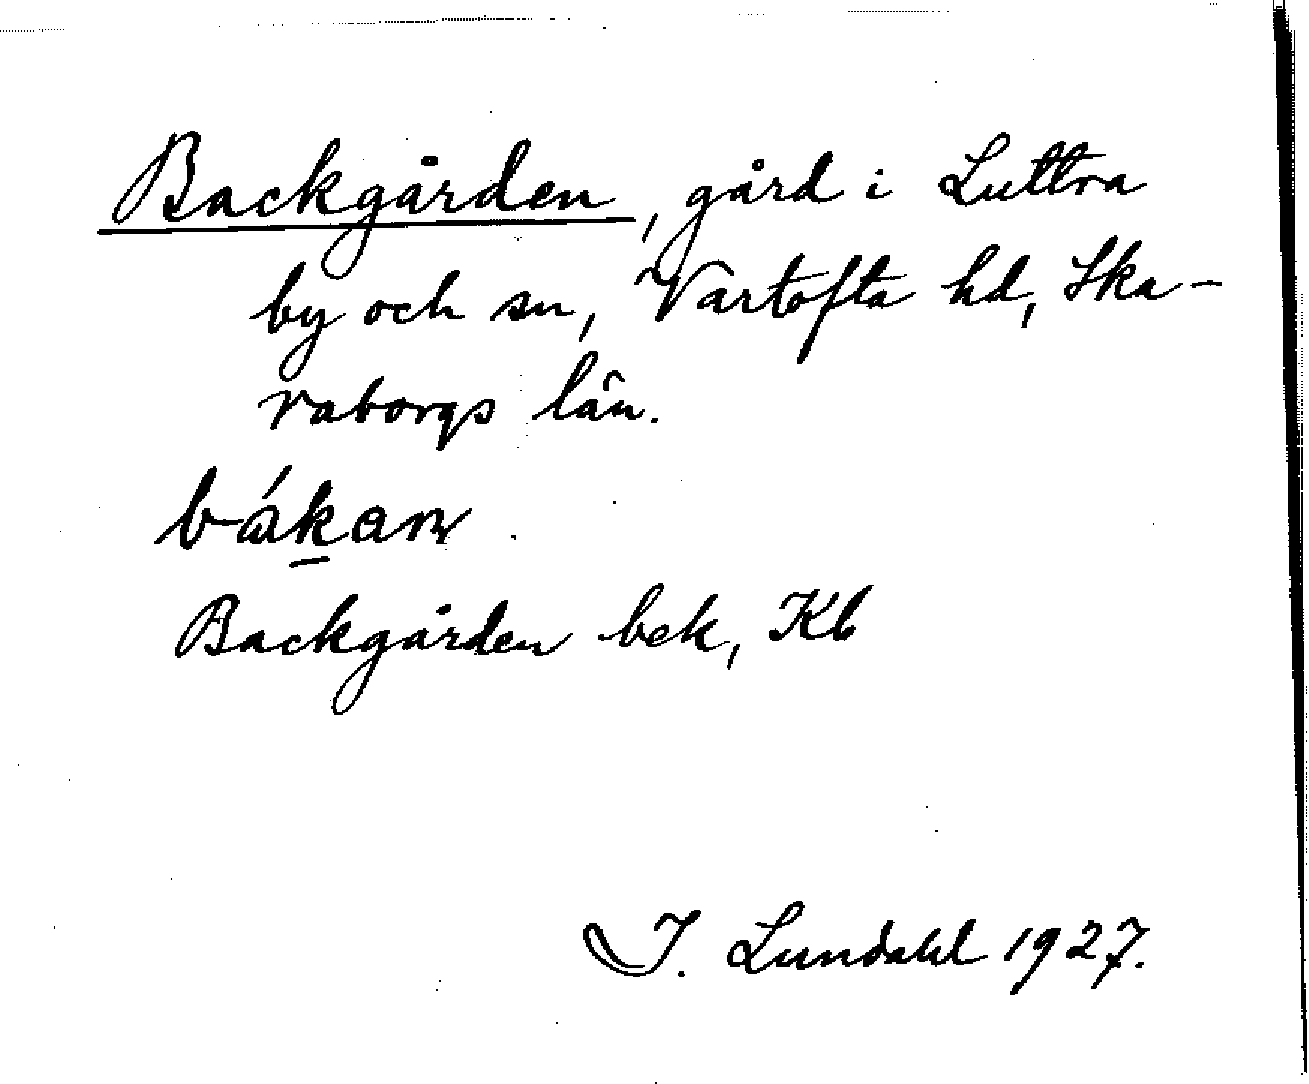 Backgården, gård i Luttra
by och sn, Vartofta hd, Ska-
raborgs län.
bákan
Backgården bek, Kb
I. Lundahl 1927.